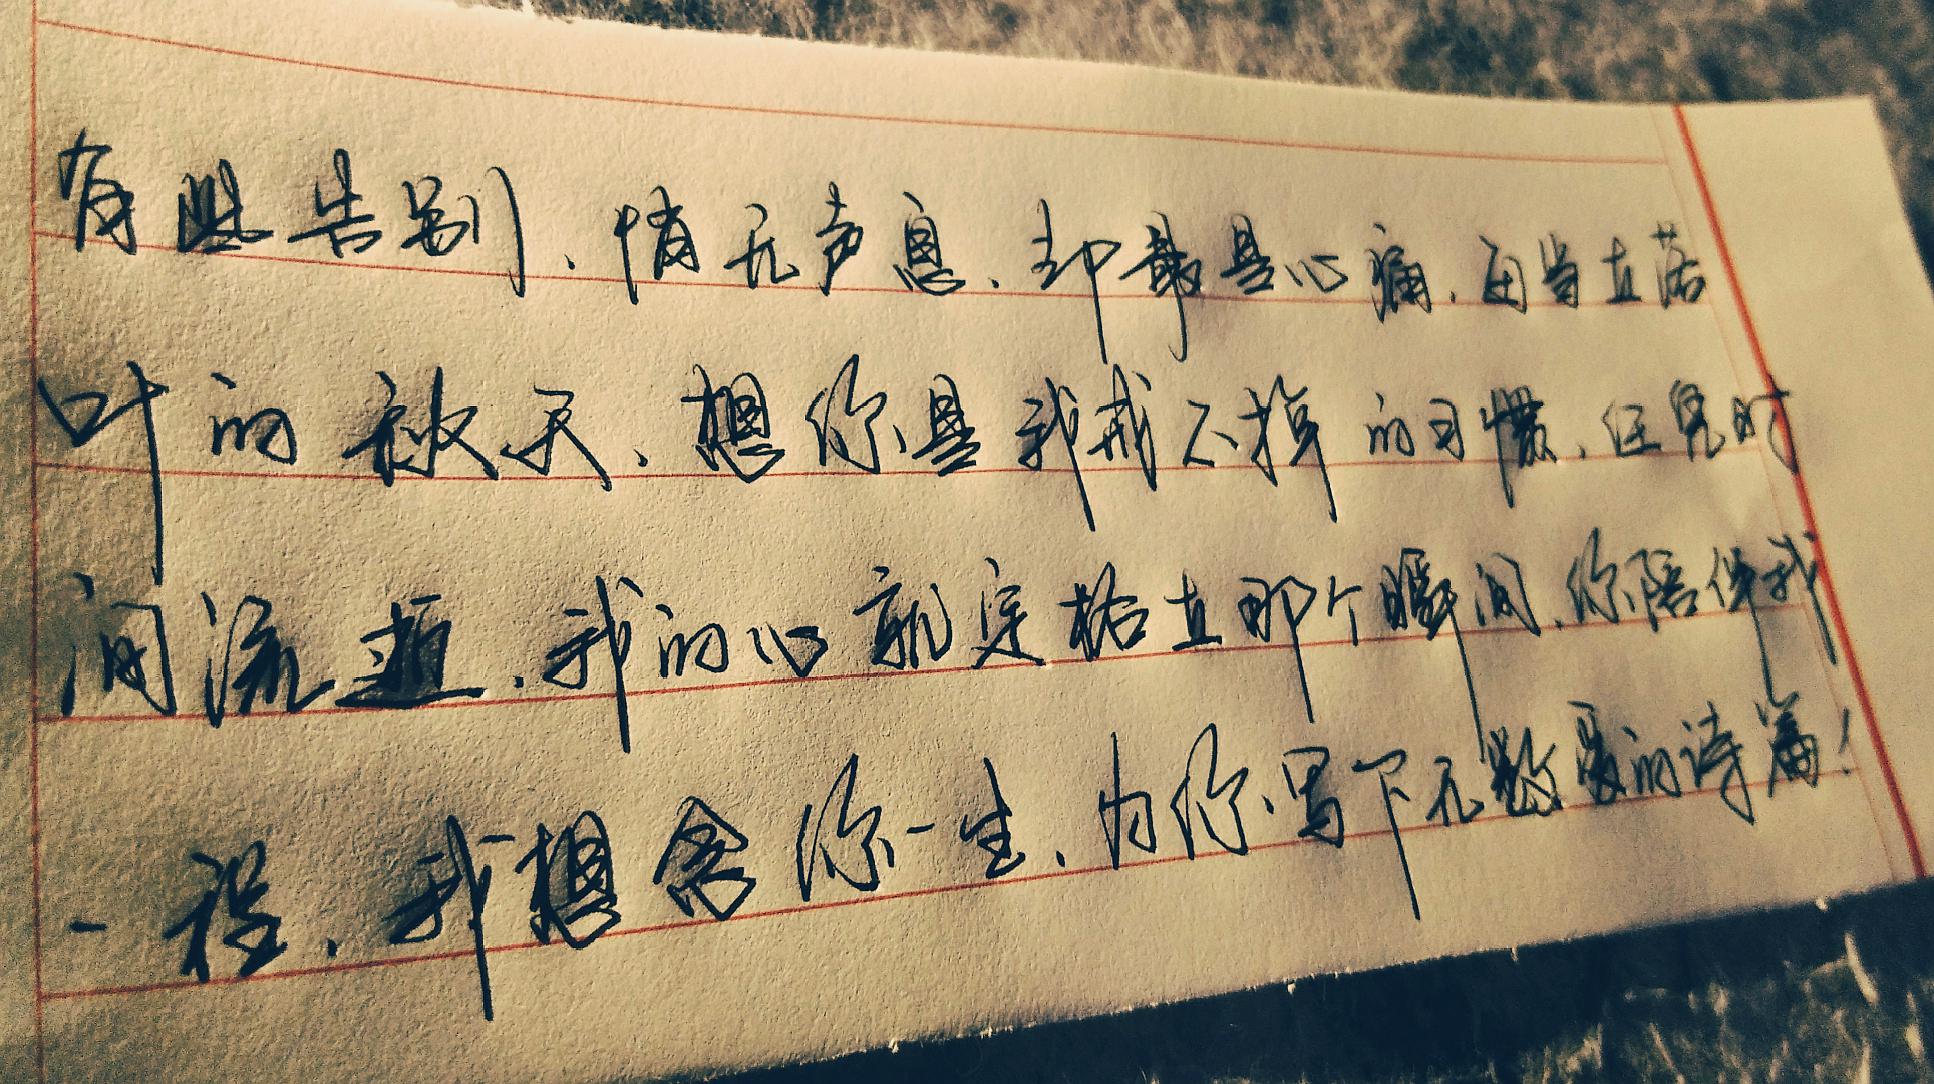 有些告别、悄无声息、却最是心痛、每当在落
叶的秋天、想你是我戒不掉的习惯、任凭时
间流逝、我的心就定格在那个瞬间、你陪伴我
一段、我想念你一生、为你写下无数爱的诗篇！